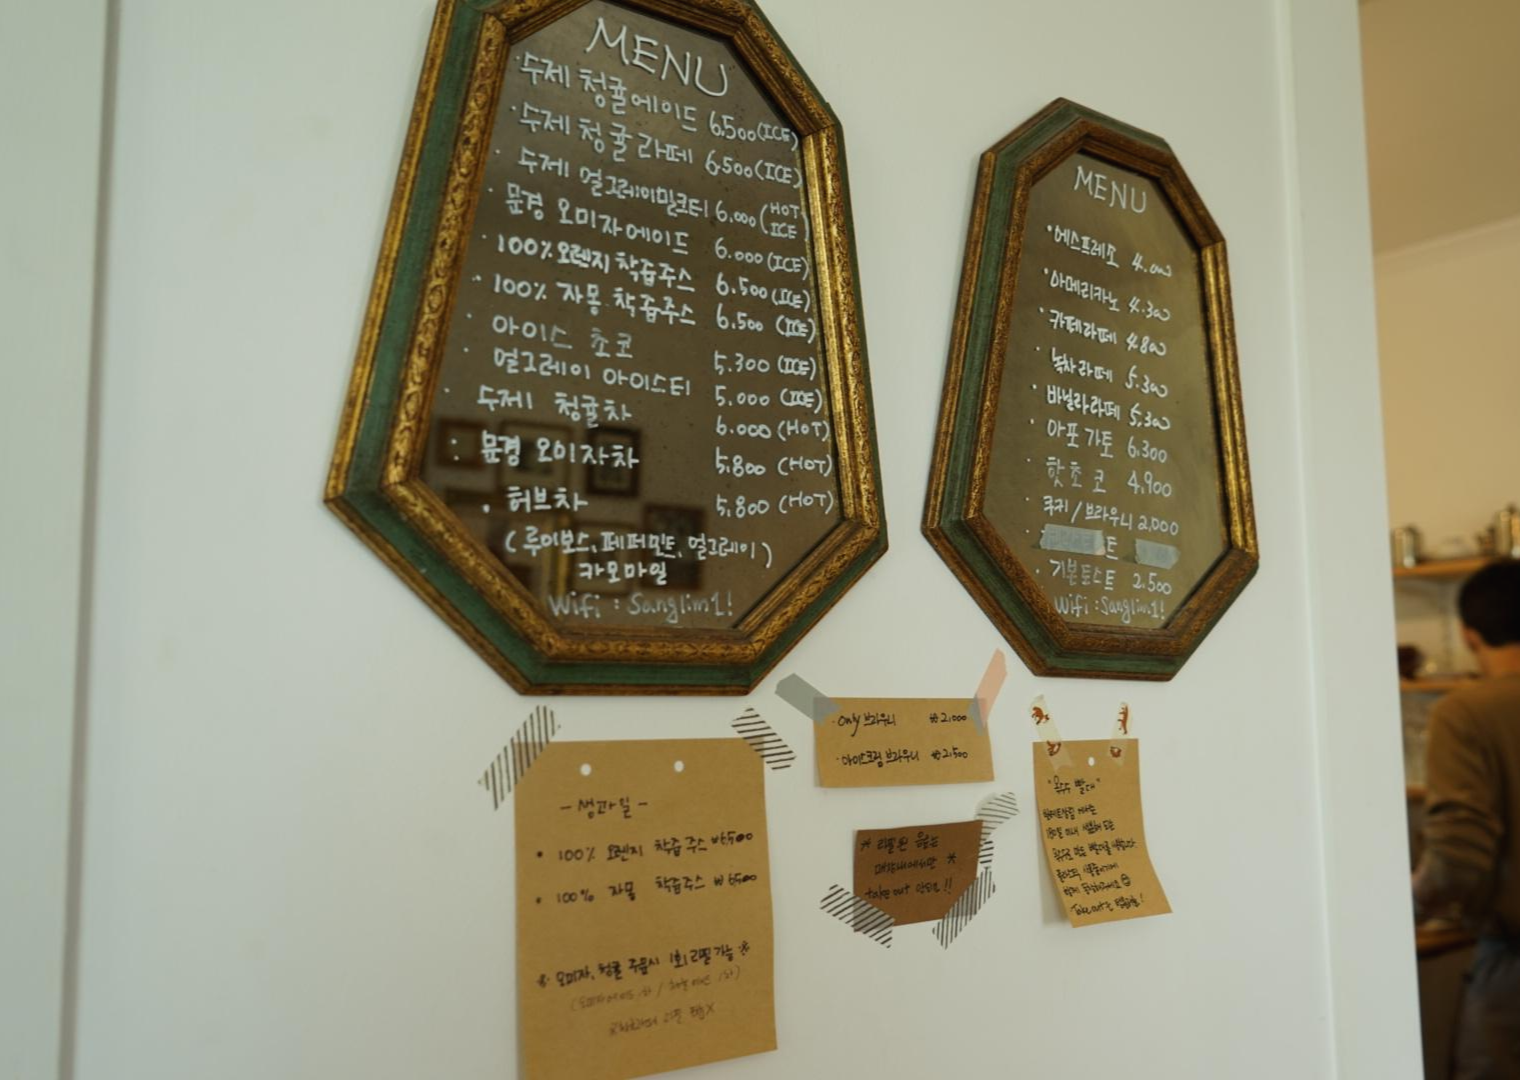 MENU
· 수제 청귤에이드 6,500 (ICE)
· 수제 청귤라떼 6500 (ICE)
· 수제 얼그레이밀크티 6.000 (HOT
ICE
· 문경 오미자에이드 6.000 (ICE)
· 100% 오렌지 착즙주스 6.500 (ICE)
· 100% 자몽 착즙주스 6.500 (ICE)
· 아이스 초코 5.300 (ICE)
· 얼그레이 아이스티 5.000 (ICE)
· 수제 청귤차 6.000 (HOT)
· 문경 오미자차 5.800 (HOT)
· 허브차 5,800 (HOT)
(루이보스, 페퍼민트, 얼그레이)
카모마일
Wifi : Sanglim1!
MENU
· 에스프레소 4.000
· 아메리카노 4.300
· 카페라떼 4.800
· 녹차라떼 5.300
· 바닐라라떼 5.300
· 아포가토 6,300
· 핫초코 4,900
· 쿠키/브라우니 2,000
트
· 기본토스트 2.500
Wifi : Sanglim1!
· Only 브라우니 ₩2.000
· 아이스크림 브라우니 ₩2.500
- 생과일 -
• 100% 오렌지 착즙주스 ₩6,500
• 100% 자몽 착즙주스 ₩6500
※ 오미자, 청귤 주문시 1회 리필가능 ※
* 리필된 음료는
매장내에서만 *
take out 안돼!!
"옥수수 빨대"
Take out는